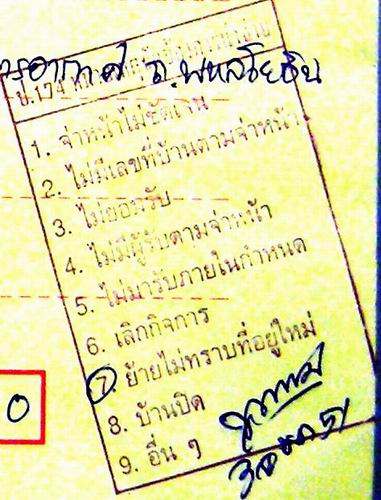 ถ.พหลโยธิน
1. จ่าหน้าไม่ชัดเจน
2. ไม่มีเลขที่บ้านตามจ่าหน้า
3. ไม่ยอมรับ
4. ไม่มีผู้รับตามจ่าหน้า
5. ไม่มารับภายในกำหนด
6. เลิกกิจการ
7. ย้ายไม่ทราบที่อยู่ใหม่
8. บ้านปิด
9. อื่น ๆ
0